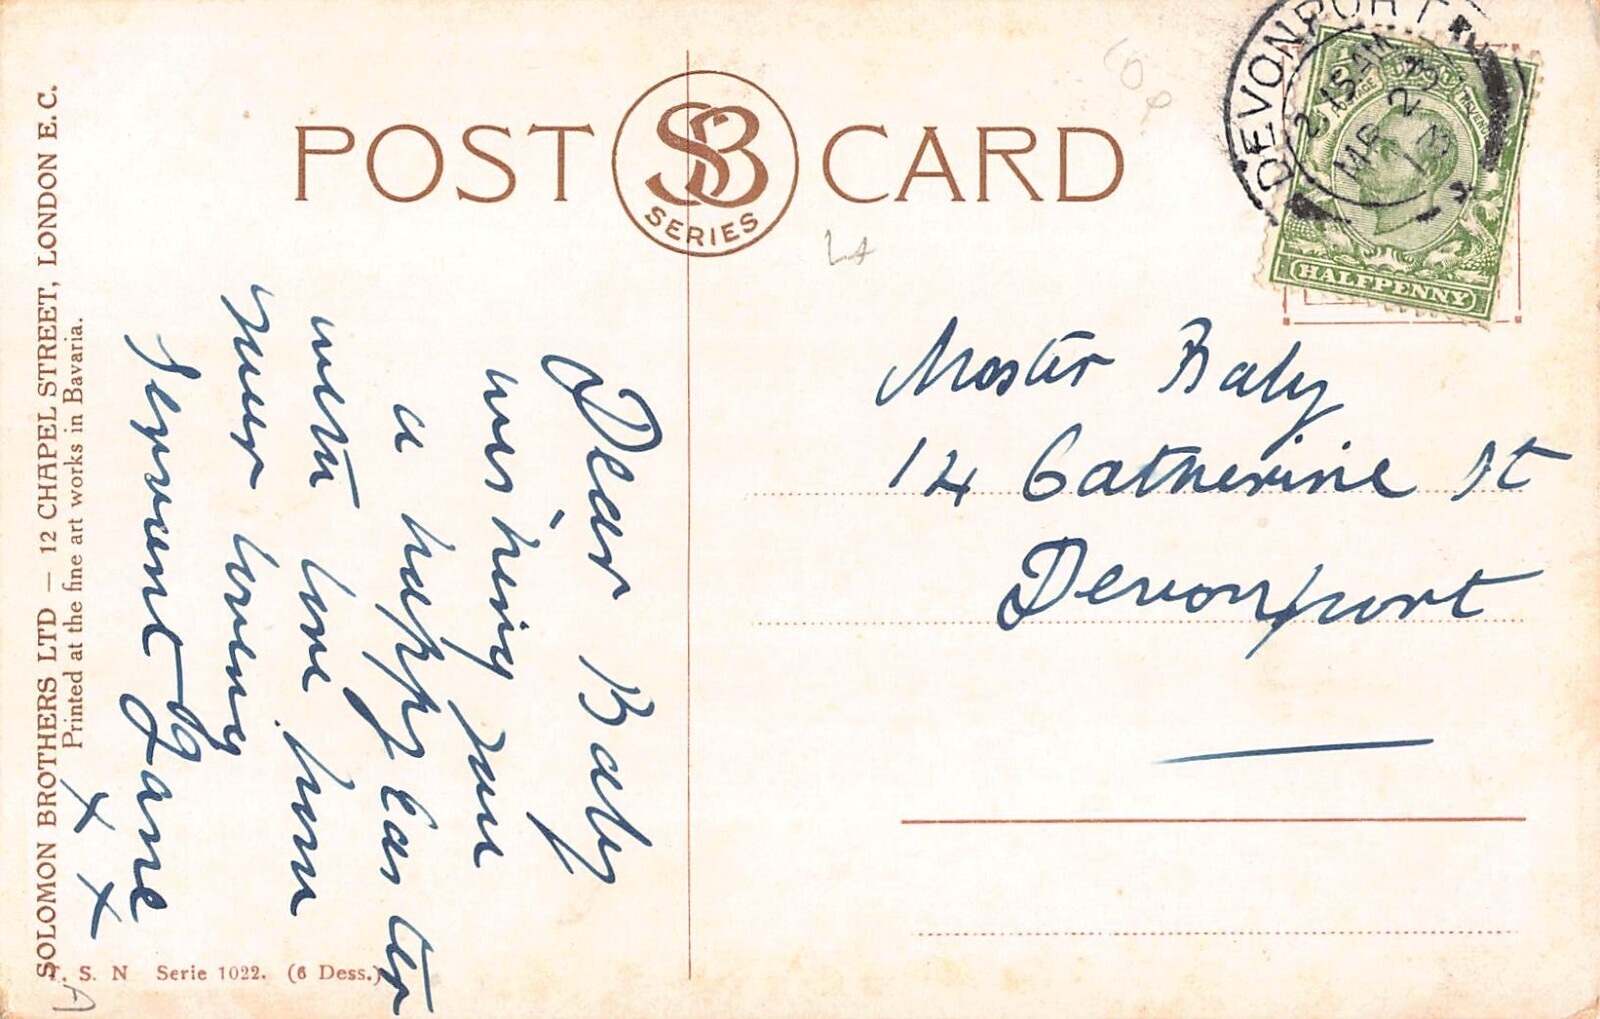 POST CARD
SB
SERIES
DEVONPORT
2 15 AM
MR 23
13
HALFPENNY
Dear Baby
wishing you
a happy Easter
with love from
your loving
servant Jane
x x
Master Baby
14 Catherine St
Devonport
SOLOMON BROTHERS LTD — 12 CHAPEL STREET, LONDON E. C.
Printed at the fine art works in Bavaria.
T. S. N Serie 1022. (6 Dess.)